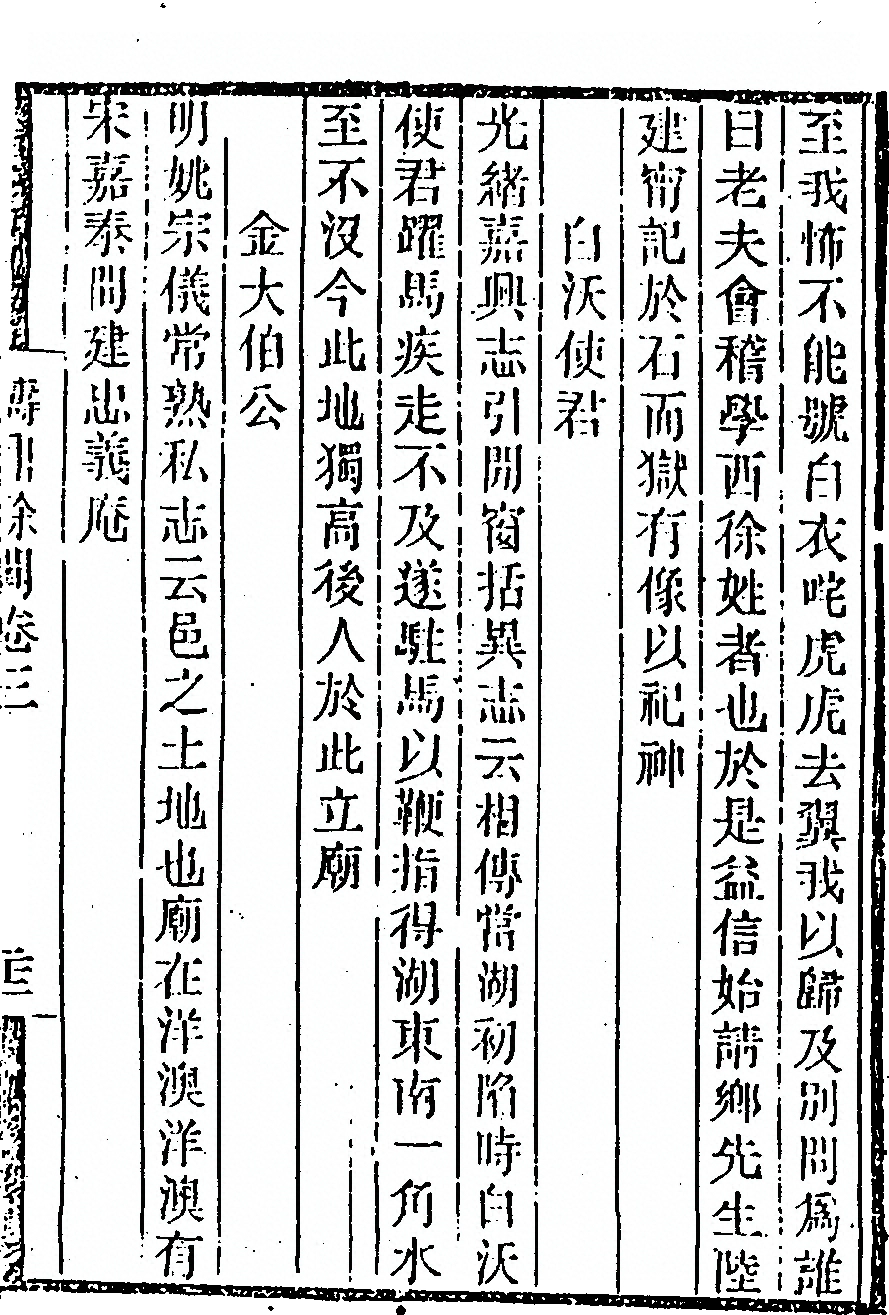 至我怖不能號白衣咤虎虎去翼我以歸及別問爲誰
曰老夫會稽學西徐姓者也於是益信始請鄉先生陸
建甯記於石而獄有像以祀神
白沃使君
光緒嘉興志引閒窗括異志云相傳當湖初陷時白沃
使君躍馬疾走不及遂駐馬以鞭指得湖東南一角水
至不沒今此地獨高後人於此立廟
金大伯公
明姚宗儀常熟私志云邑之土地也廟在洋澳洋澳有
宋嘉泰間建忠義庵
餘聞卷三